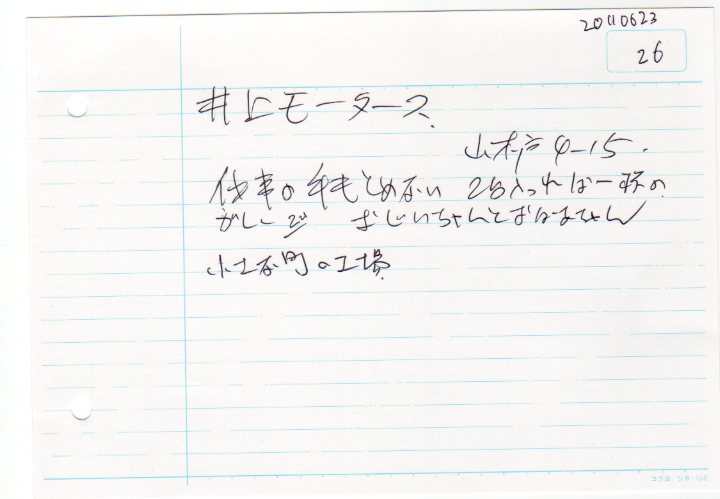 20110623
26
井上モータース.
山木戸4-15.
仕事の手もとめない 2台入れば一杯の
おじいちゃんとおばあちゃん
の工場.
コクヨ シカ-15B